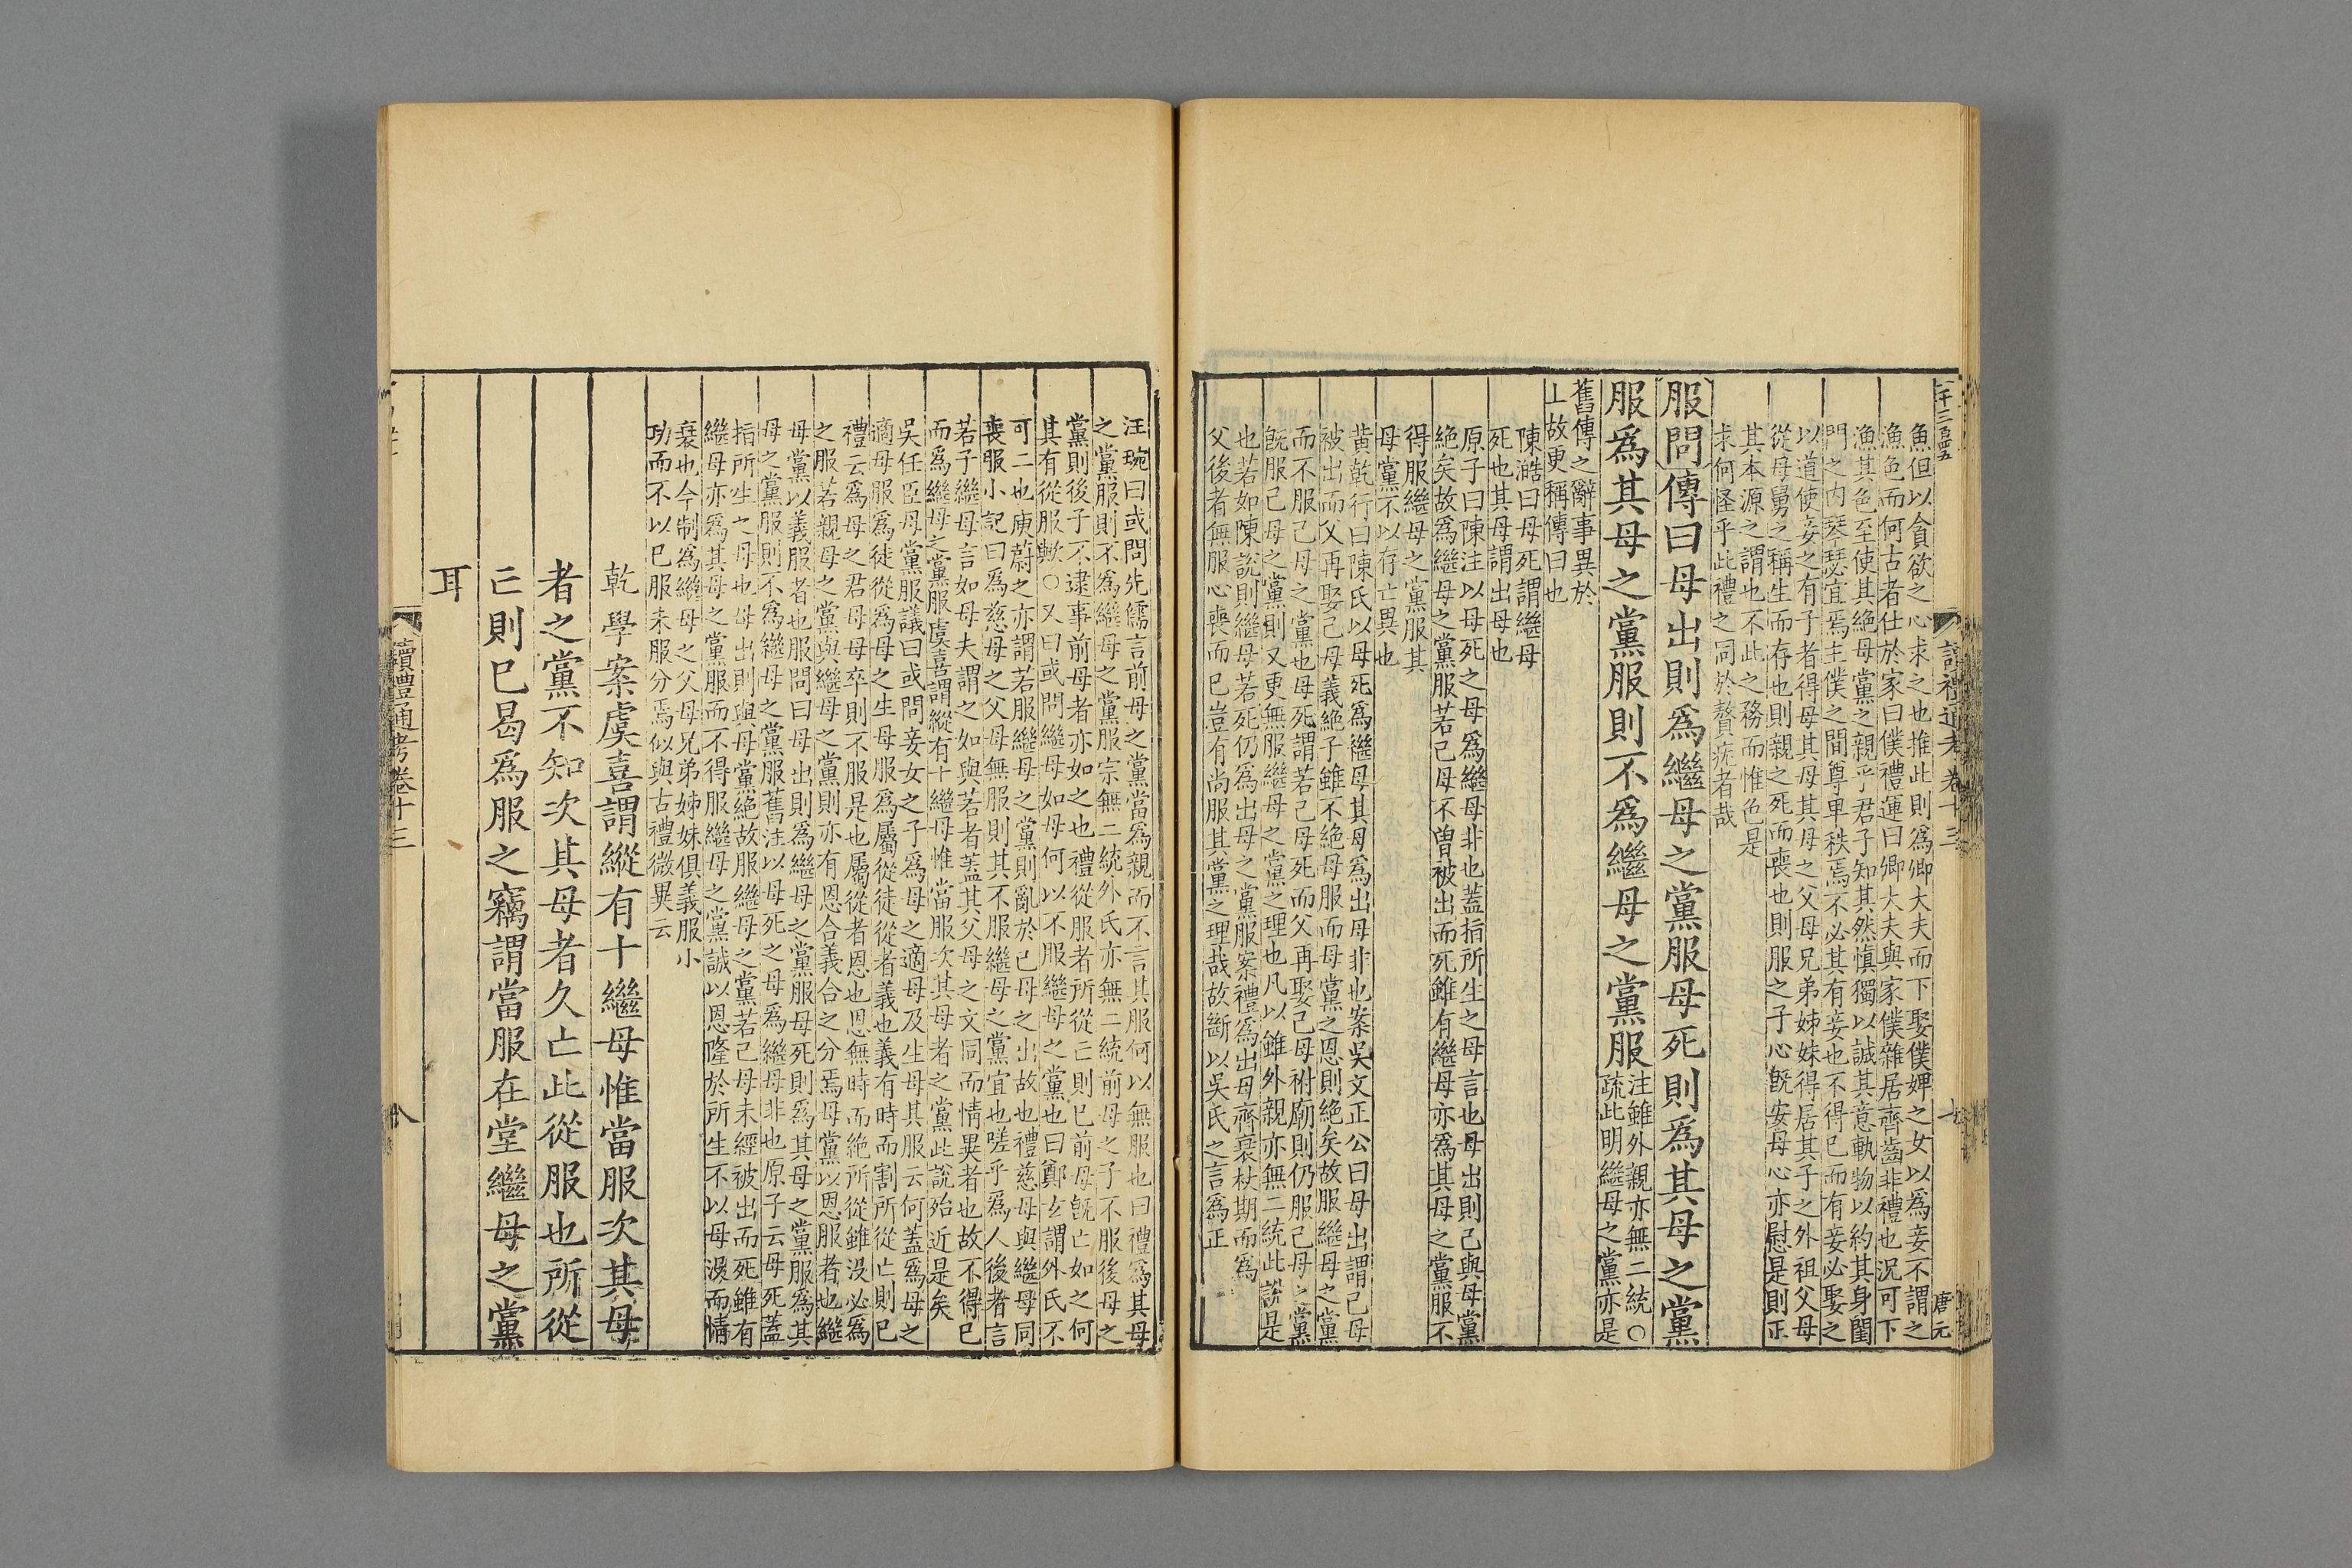 魚但以貪欲之心求之也推此則爲卿大夫而下娶僕婢之女以爲妾不謂之
漁色而何古者仕於家曰僕禮運曰卿大夫與家僕雜居齊齒非禮也況可下
漁其色至使其絶母黨之親乎君子知其然愼獨以誠其意軌物以約其身閨
門之内琴瑟宜焉主僕之間尊卑秩焉不必其有妾也不得已而有妾必娶之
以道使妾之有子者得母其母之父母兄弟姊妹得居其子之外祖父母
從母舅之稱生而存也則親之死而喪也則服之子心旣安母心亦慰是則正
其本源之謂也不此之務而惟色是
求何怪乎此禮之同於贅疣者哉
服問傳曰母出則爲繼母之黨服母死則爲其母之黨
服爲其母之黨服則不爲繼母之黨服
注雖外親亦無二統○
疏此明繼母之黨亦是
舊傳之辭事異於
上故更稱傳曰也
陳澔曰母死謂繼母
死也其母謂出母也
原子曰陳注以母死之母爲繼母非也蓋指所生之母言也母出則己與母黨
絶矣故爲繼母之黨服若己母不曽被出而死雖有繼母亦爲其母之黨服不
得服繼母之黨服其
母黨不以存亡異也
黄乾行曰陳氏以母死爲繼母其母爲出母非也案吳文正公曰母出謂己母
被出而父再娶己母義絶子雖不絶母服而母黨之恩則絶矣故服繼母之黨
而不服己母之黨也母死謂若己母死而父再娶己母祔廟則仍服己母之黨
旣服己母之黨則又更無服繼母之黨之理也凡以雖外親亦無二統此説是
也若如陳說則繼母若死仍爲出母之黨服案禮爲出母齊衰杖期而爲
父後者無服心喪而已豈有尚服其黨之理哉故斷以吳氏之言爲正
讀禮通考卷十三
唐元
汪琬曰或問先儒言前母之黨當爲親而不言其服何以無服也曰禮爲其母
之黨服則不爲繼母之黨服宗無二統外氏亦無二統前母之子不服後母之
黨則後子不逮事前母者亦如之也禮從服者所從亡則已前母旣亡如之何
其有從服歟○又曰或問繼母如母何以不服繼母之黨也曰鄭玄謂外氏不
可二也庾蔚之亦謂若服繼母之黨則亂於己母之出故也禮慈母與繼母同
喪服小記曰爲慈母之父母無服則其不服繼母之黨宜也嗟乎爲人後者言
若子繼母言如母夫謂之如與若者蓋其父母之文同而情異者也故不得已
而爲繼母之黨服虞喜謂縱有十繼母惟當服次其母者之黨此說殆近是矣
吳任臣母黨服議曰或問妾女之子爲母之適母及生母其服云何蓋爲母之
適母服爲徒從爲母之生母服爲屬從徒從者義也義有時而割所從亡則已
禮云爲母之君母母卒則不服是也屬從者恩也恩無時而絶所從雖沒必爲
之服若親母之黨與繼母之黨則亦有恩合義合之分焉母黨以恩服者也繼
母黨以義服者也服問曰母出則爲繼母之黨服母死則爲其母之黨服爲其
母之黨服則不爲繼母之黨服舊注以母死之母爲繼母非也原子云母死蓋
指所生之母也母出則與母黨絶故服繼母之黨若己母未經被出而死雖有
繼母亦爲其母之黨服而不得服繼母之黨誠以恩隆於所生不以母沒而情
衰也今制爲繼母之父母兄弟姊妹俱義服小
功而不以已服未服分焉似與古禮微異云
乾學案虞喜謂縱有十繼母惟當服次其母
者之黨不知次其母者久亡此從服也所從
亡則已曷爲服之竊謂當服在堂繼母之黨
耳
讀禮通考卷十三
八